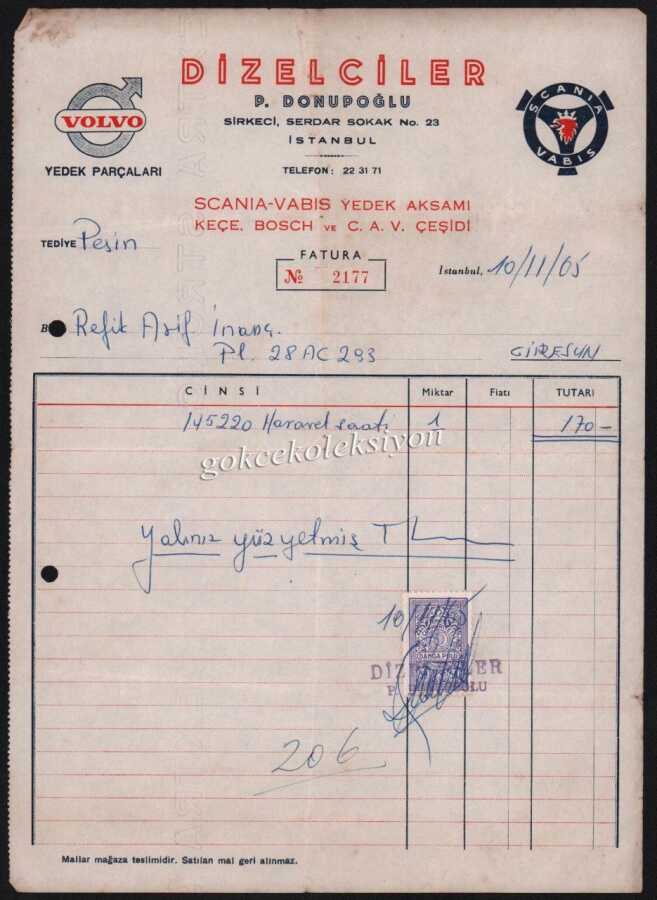 DİZELCİLER
P. DONUPOĞLU
SİRKECİ, SERDAR SOKAK No. 23
İSTANBUL
TELEFON: 22 31 71
VOLVO
YEDEK PARÇALARI
SCANIA
VABIS
SCANIA-VABIS YEDEK AKSAMI
KEÇE, BOSCH VE C. A. V. ÇEŞİDİ
TEDİYE Peşin
FATURA
№ 2177
İstanbul, 10/11/65
B Refik Asif İnanç.
Pl. 28 AC 293
GİRESUN
CİNSİ Miktar Fiatı TUTARI
145220 Hararet saati 1 170-
gokcekoleksiyon
Yalınız yüzyetmiş TL
10/11/65
DAMGA PULU
DİZELCİLER
P. DONUPOĞLU
206
Mallar mağaza teslimidir. Satılan mal geri alınmaz.